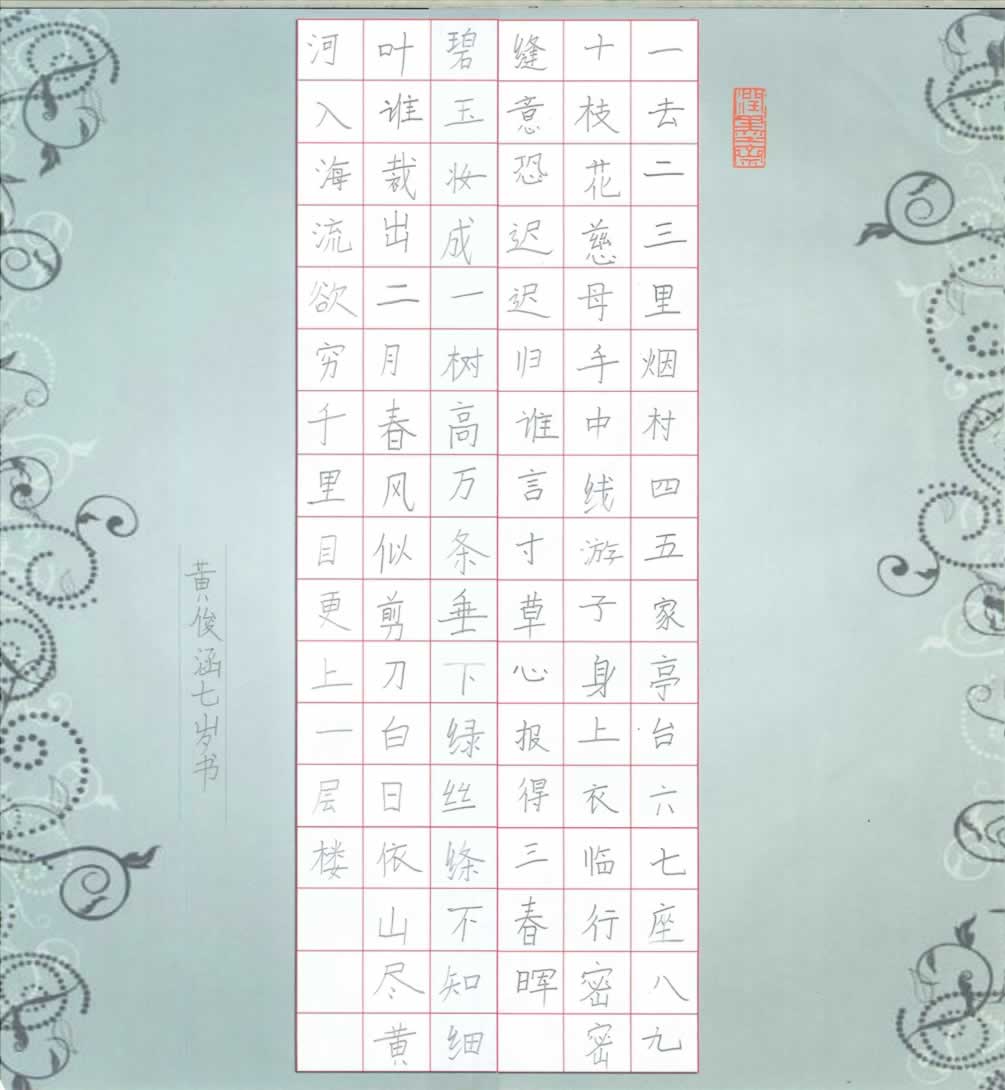 一去二三里烟村四五家亭台六七座八九
十枝花慈母手中线游子身上衣临行密密
缝意恐迟迟归谁言寸草心报得三春晖
碧玉妆成一树高万条垂下绿丝绦不知细
叶谁裁出二月春风似剪刀白日依山尽黄
河入海流欲穷千里目更上一层楼
黄俊涵七岁书